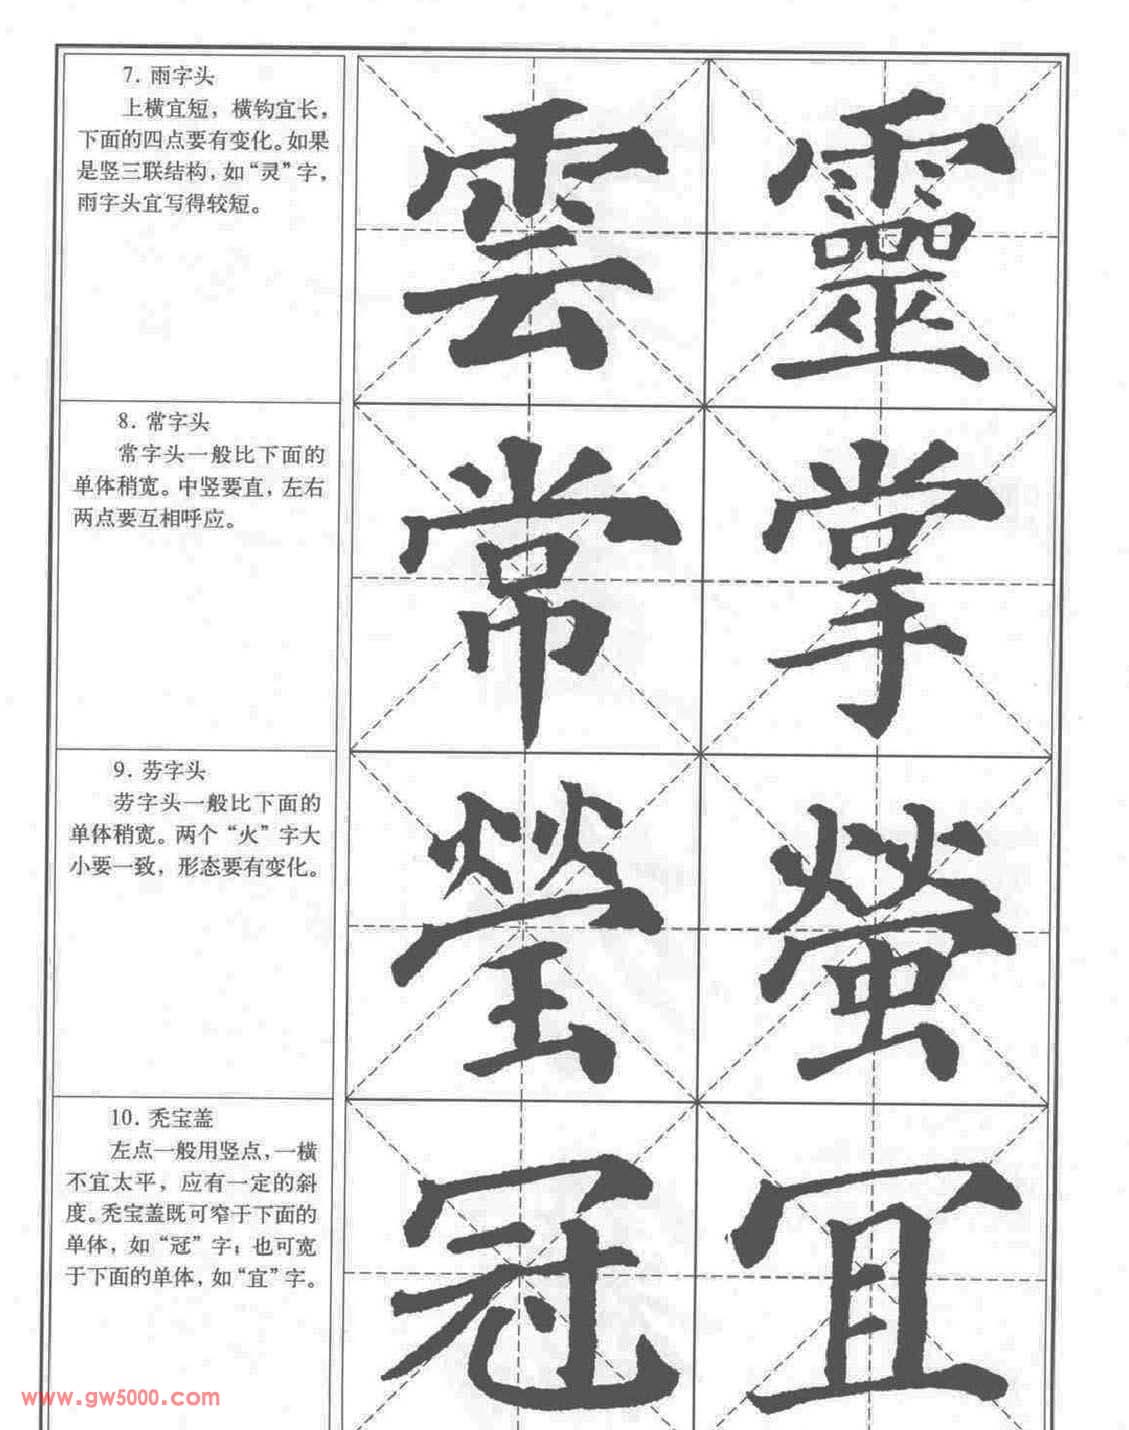 7. 雨字头
上横宜短，横钩宜长，
下面的四点要有变化。如果
是竖三联结构，如“灵”字，
雨字头宜写得较短。
雲 靈
8. 常字头
常字头一般比下面的
单体稍宽。中竖要直，左右
两点要互相呼应。
常 掌
9. 劳字头
劳字头一般比下面的
单体稍宽。两个“火”字大
小要一致，形态要有变化。
瑩 螢
10. 秃宝盖
左点一般用竖点，一横
不宜太平，应有一定的斜
度。秃宝盖既可窄于下面的
单体，如“冠”字；也可宽
于下面的单体，如“宜”字。
冠 冝
www.gw5000.com